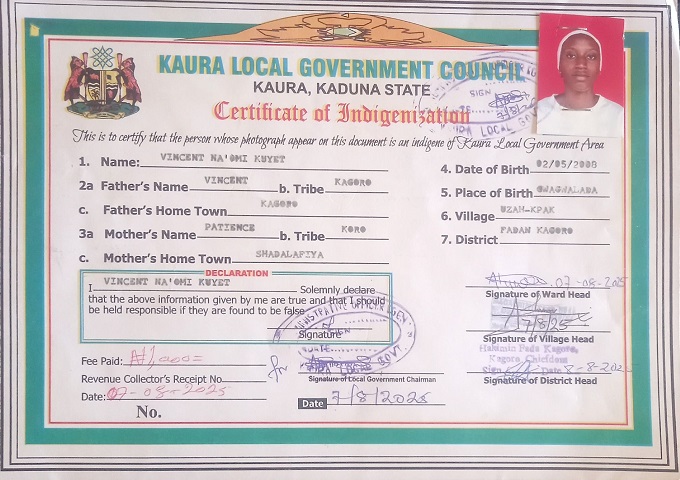 KAURA LOCAL GOVERNMENT COUNCIL
KAURA, KADUNA STATE
Certificate of Indigenization
This is to certify that the person whose photograph appear on this document is an indigene of Kaura Local Government Area
1. Name: VINCENT NA'OMI KUYET
2a Father's Name VINCENT b. Tribe KAGORO
c. Father's Home Town KAGORO
3a Mother's Name PATIENCE b. Tribe KORO
c. Mother's Home Town SHADALAFIYA
4. Date of Birth 02/05/2008
5. Place of Birth GWAGWALADA
6. Village UZAH-KPAK
7. District FADAN KAGORO
DECLARATION
I VINCENT NA'OMI KUYET Solemnly declare
that the above information given by me are true and that I should
be held responsible if they are found to be false
Signature
07-08-2025
Signature of Ward Head
7/8/25
Signature of Village Head
Kagoro Chiefdom
Sign Date 8-8-2025
Signature of District Head
Fee Paid: ₦1,000=
Revenue Collector's Receipt No.
Date: 07-08-2025
No.
for
Signature of Local Government Chairman
Date 7/8/2025
SIGN
7/8/25
LOCAL GOVT
SIGN
DATE